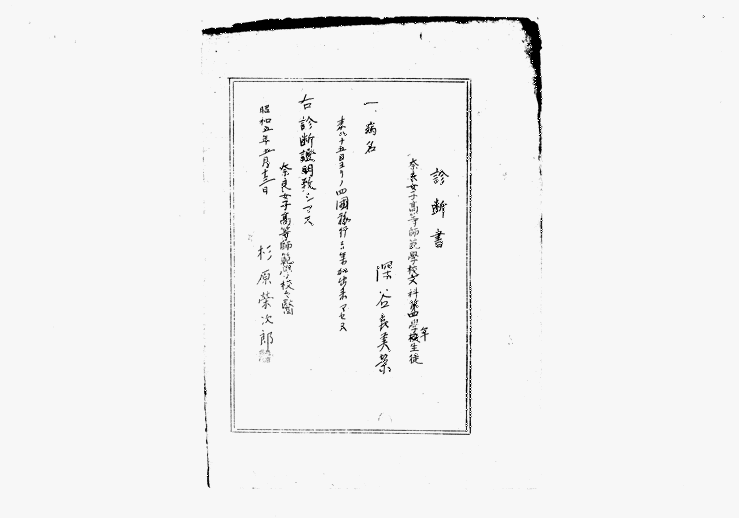 診断書
奈良女子高等師範學校文科第四学年生徒
深谷喜美榮
一、病名
来ル十五日ヨリノ四國旅行ニ参加出来マセヌ
右診断證明致シマス
昭和五年五月十三日
奈良女子高等師範學校々醫
杉原榮次郎